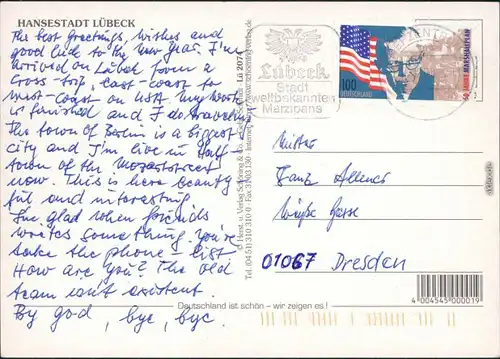 HANSESTADT LÜBECK
The best greetings, wishes and
good luck to the new year. I'm
arrived on Lübek form a
Cross-trip, east-coast to
west-coast on USA. My work
is finished and I do
The town of Berlin is a biggest
city and I'm live in
town of the
now. This is here beauty
ful and interesting.
I'm glad when friends
writes something. You're
take the phone-list
How are you? The old
team isn't existent.
By god, bye, bye.
© Herst. u. Verlag Schöning & Co.
Lü 207
Tel. (0451) 31 03 10 · Fax 31 93 130 · Internet: http://www.schoening-verlag.de
Deutschland ist schön – wir zeigen es!
Lübeck
Stadt
weltbekannten
Marzipans
100
DEUTSCHLAND
50 JAHRE MARSHALLPLAN
01067 Dresden
4 004545 000019